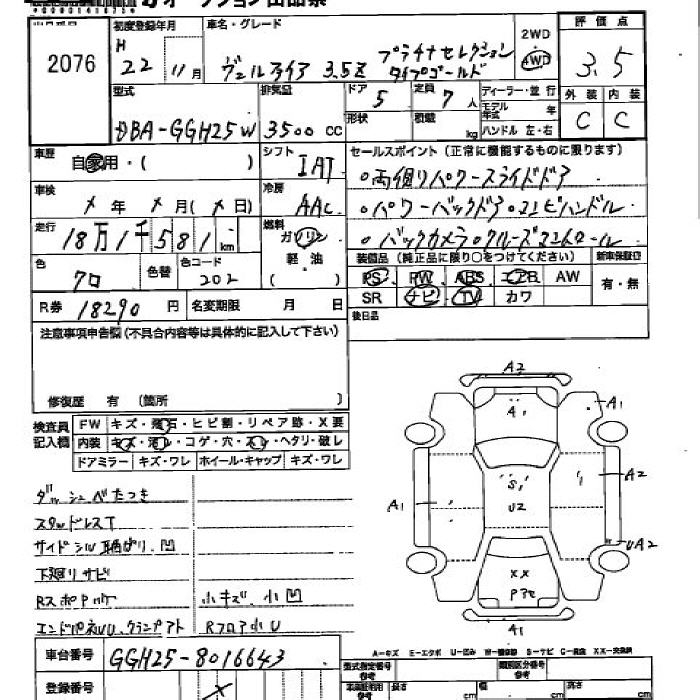 オークション出品票
2076
初度登録年月
H
22 11月
車名・グレード
ヴェルファイア 3.5Z プラチナセレクション
タイプゴールド
2WD
4WD
評価点
3.5
外装 内装
C C
型式
DBA-GGH25W
排気量
3500 CC
ドア
5
形状
定員
7人
積載
kg
ディーラー・並行
モデル年式 年
ハンドル 左・右
車歴
自家用・( )
シフト
IAT
車検
年 月( 日)
冷房
AAC
走行
18万1千581 km
燃料
ガソリン
軽・油
( )
色
クロ
色替
色コード
202
セールスポイント(正常に機能するものに限ります)
○両側りパワースライドドア
○パワーバックドア○コンビハンドル
○バックカメラ○クルーズコントロール
装備品(純正品に限り○をつけてください)
新車保証書
PS PW ABS エアB AW
有・無
SR ナビ TV カワ
後日品
R券 18290 円 名変期限 月 日
注意事項申告欄(不具合内容等は具体的に記入して下さい)
修復歴 有 (箇所 )
検査員記入欄
FW キズ・飛石・ヒビ割・リペア跡・X要
内装 キズ・汚レ・コゲ・穴・スレ・ヘタリ・破レ
ドアミラー キズ・ワレ ホイール・キャップ キズ・ワレ
ダッシュベたつき
スタッドレスT
サイドシル
凹
下廻りサビ
小キズ、小凹
Rフロア小U
A2
A1
A1
A2
S1
U2
A1
UA2
XX
A1
A-キズ E-エクボ U-凹み
車台番号 GGH25-8016643
登録番号
型式指定番号
参考
類別区分番号
参考
長さ
cm
幅
cm
高さ
cm